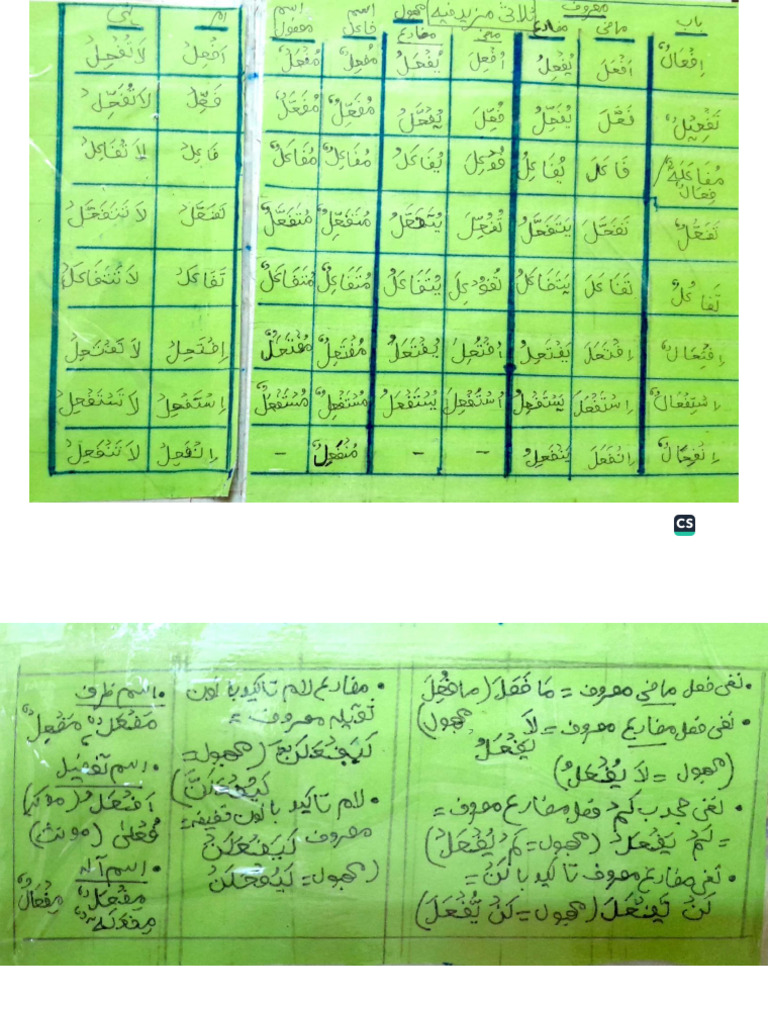 معروف ثلاثی مزید فیہ مجہول اسم اسم
باب ماضی مضارع ماضی مضارع فاعل مفعول امر نہی
اِفْعَالٌ اَفْعَلَ يُفْعِلُ اُفْعِلَ يُفْعَلُ مُفْعِلٌ مُفْعَلٌ اَفْعِلْ لَا تُفْعِلْ
تَفْعِيْلٌ فَعَّلَ يُفَعِّلُ فُعِّلَ يُفَعَّلُ مُفَعِّلٌ مُفَعَّلٌ فَعِّلْ لَا تُفَعِّلْ
مُفَاعَلَةٌ / فِعَالٌ فَاعَلَ يُفَاعِلُ فُوْعِلَ يُفَاعَلُ مُفَاعِلٌ مُفَاعَلٌ فَاعِلْ لَا تُفَاعِلْ
تَفَعُّلٌ تَفَعَّلَ يَتَفَعَّلُ تُفُعِّلَ يُتَفَعَّلُ مُتَفَعِّلٌ مُتَفَعَّلٌ تَفَعَّلْ لَا تَتَفَعَّلْ
تَفَاعُلٌ تَفَاعَلَ يَتَفَاعَلُ تُفُوْعِلَ يُتَفَاعَلُ مُتَفَاعِلٌ مُتَفَاعَلٌ تَفَاعَلْ لَا تَتَفَاعَلْ
اِفْتِعَالٌ اِفْتَعَلَ يَفْتَعِلُ اُفْتُعِلَ يُفْتَعَلُ مُفْتَعِلٌ مُفْتَعَلٌ اِفْتَعِلْ لَا تَفْتَعِلْ
اِسْتِفْعَالٌ اِسْتَفْعَلَ يَسْتَفْعِلُ اُسْتُفْعِلَ يُسْتَفْعَلُ مُسْتَفْعِلٌ مُسْتَفْعَلٌ اِسْتَفْعِلْ لَا تَسْتَفْعِلْ
اِنْفِعَالٌ اِنْفَعَلَ يَنْفَعِلُ - - مُنْفَعِلٌ - اِنْفَعِلْ لَا تَنْفَعِلْ
CS
• نفی فعل ماضی معروف = مَا فَعَلَ (مَا فُعِلَ
• نفی فعل مضارع معروف = لَا مجہول)
يَفْعَلُ
(مجہول = لَا يُفْعَلُ)
• نفی جحد بلَمْ فعل مضارع معروف =
= لَمْ يَفْعَلْ (مجہول = لَمْ يُفْعَلْ)
• نفی مضارع معروف تاکید با لَنْ =
لَنْ يَّفْعَلَ (مجہول = لَنْ يُّفْعَلَ)
• مضارع لام تاکید با نون
ثقیلہ معروف =
لَيَفْعَلَنَّ (مجہول =
لَيُفْعَلَنَّ)
• لام تاکید با نون خفیفہ =
معروف لَيَفْعَلَنْ
(مجہول = لَيُفْعَلَنْ
• اسم ظرف
مَفْعَلٌ مَفْعِلٌ
• اسم تفضیل
اَفْعَلُ (مذکر)
فُعْلٰی (مونث)
• اسم آلہ
مِفْعَلٌ مِفْعَالٌ
مِفْعَلَةٌ